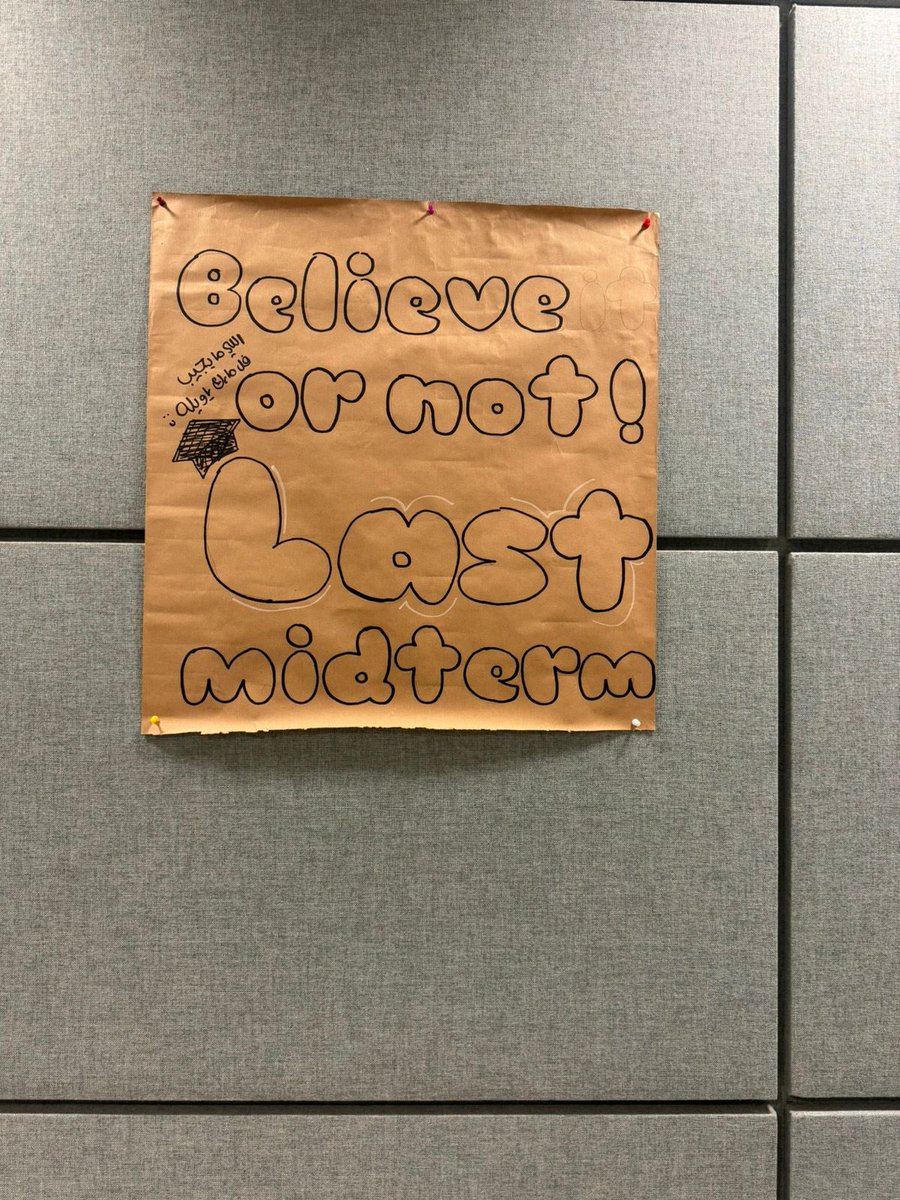 Believe it
or not!
اللي ما يجيب
فل مارك ياويله :
Last
midterm